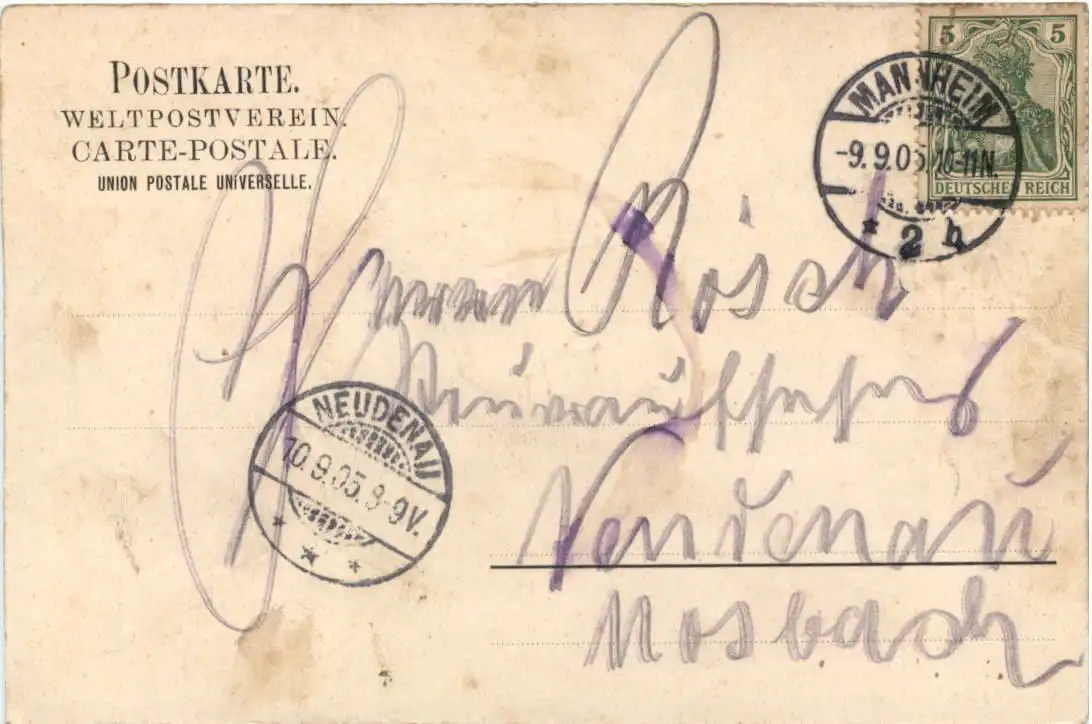 POSTKARTE.
WELTPOSTVEREIN.
CARTE-POSTALE.
UNION POSTALE UNIVERSELLE.
5 5
DEUTSCHES REICH
MANNHEIM
-9.9.05. 10-11N.
* 2 h
Rösch
Neudenau
Mosbach
NEUDENAU
10.9.05. 8-9V.